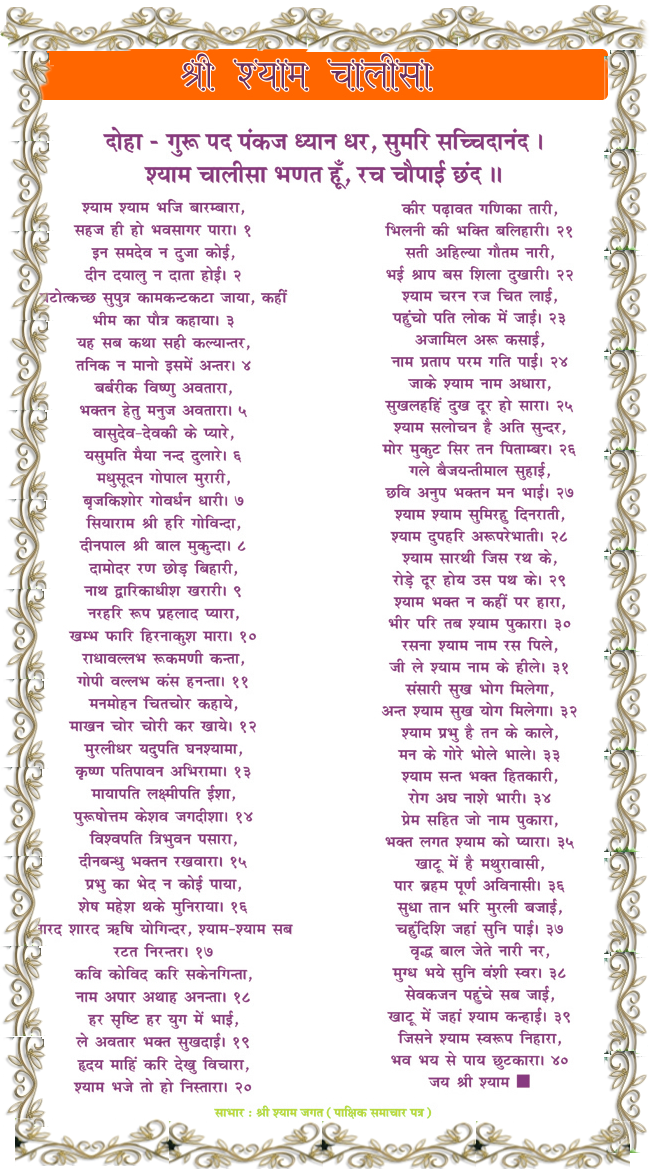 श्री श्याम चालीसा
दोहा - गुरू पद पंकज ध्यान धर, सुमरि सच्चिदानंद ।
श्याम चालीसा भणत हूँ, रच चौपाई छंद ॥
श्याम श्याम भजि बारम्बारा,
सहज ही हो भवसागर पारा। १
इन समदेव न दुजा कोई,
दीन दयालु न दाता होई। २
सुपुत्र कामकन्टकटा जाया, कहीं
भीम का पौत्र कहाया। ३
यह सब कथा सही कल्यान्तर,
तनिक न मानो इसमें अन्तर। ४
बर्बरीक विष्णु अवतारा,
भक्तन हेतु मनुज अवतारा। ५
वासुदेव-देवकी के प्यारे,
यसुमति मैया नन्द दुलारे। ६
मधुसूदन गोपाल मुरारी,
बृजकिशोर गोवर्धन धारी। ७
सियाराम श्री हरि गोविन्दा,
दीनपाल श्री बाल मुकुन्दा। ८
दामोदर रण छोड़ बिहारी,
नाथ द्वारिकाधीश खरारी। ९
नरहरि रूप प्रहलाद प्यारा,
खम्भ फारि हिरनाकुश मारा। १०
राधावल्लभ रूकमणी कन्ता,
गोपी वल्लभ कंस हनन्ता। ११
मनमोहन चितचोर कहाये,
माखन चोर चोरी कर खाये। १२
मुरलीधर यदुपति घनश्यामा,
कृष्ण पतिपावन अभिरामा। १३
मायापति लक्ष्मीपति ईशा,
पुरूषोत्तम केशव जगदीशा। १४
विश्वपति त्रिभुवन पसारा,
दीनबन्धु भक्तन रखवारा। १५
प्रभु का भेद न कोई पाया,
शेष महेश थके मुनिराया। १६
शारद ऋषि योगिन्दर, श्याम-श्याम सब
रटत निरन्तर। १७
कवि कोविद करि सकेनगिन्ता,
नाम अपार अथाह अनन्ता। १८
हर सृष्टि हर युग में भाई,
ले अवतार भक्त सुखदाई। १९
हृदय माहिं करि देखु विचारा,
श्याम भजे तो हो निस्तारा। २०
कीर पढ़ावत गणिका तारी,
भिलनी की भक्ति बलिहारी। २१
सती अहिल्या गौतम नारी,
भई श्राप बस शिला दुखारी। २२
श्याम चरन रज चित लाई,
पहुंचो पति लोक में जाई। २३
अजामिल अरू कसाई,
नाम प्रताप परम गति पाई। २४
जाके श्याम नाम अधारा,
सुखलहहिं दुख दूर हो सारा। २५
श्याम सलोचन है अति सुन्दर,
मोर मुकुट सिर तन पिताम्बर। २६
गले बैजयन्तीमाल सुहाई,
छवि अनुप भक्तन मन भाई। २७
श्याम श्याम सुमिरहु दिनराती,
श्याम दुपहरि अरूपरेभाती। २८
श्याम सारथी जिस रथ के,
रोड़े दूर होय उस पथ के। २९
श्याम भक्त न कहीं पर हारा,
भीर परि तब श्याम पुकारा। ३०
रसना श्याम नाम रस पिले,
जी ले श्याम नाम के हीले। ३१
संसारी सुख भोग मिलेगा,
अन्त श्याम सुख योग मिलेगा। ३२
श्याम प्रभु है तन के काले,
मन के गोरे भोले भाले। ३३
श्याम सन्त भक्त हितकारी,
रोग अघ नाशे भारी। ३४
प्रेम सहित जो नाम पुकारा,
भक्त लगत श्याम को प्यारा। ३५
खाटू में है मथुरावासी,
पार ब्रहम पूर्ण अविनासी। ३६
सुधा तान भरि मुरली बजाई,
चहुंदिशि जहां सुनि पाई। ३७
वृद्ध बाल जेते नारी नर,
मुग्ध भये सुनि वंशी स्वर। ३८
सेवकजन पहुंचे सब जाई,
खाटू में जहां श्याम कन्हाई। ३९
जिसने श्याम स्वरूप निहारा,
भव भय से पाय छुटकारा। ४०
जय श्री श्याम
साभार : श्री श्याम जगत ( पाक्षिक समाचार पत्र )